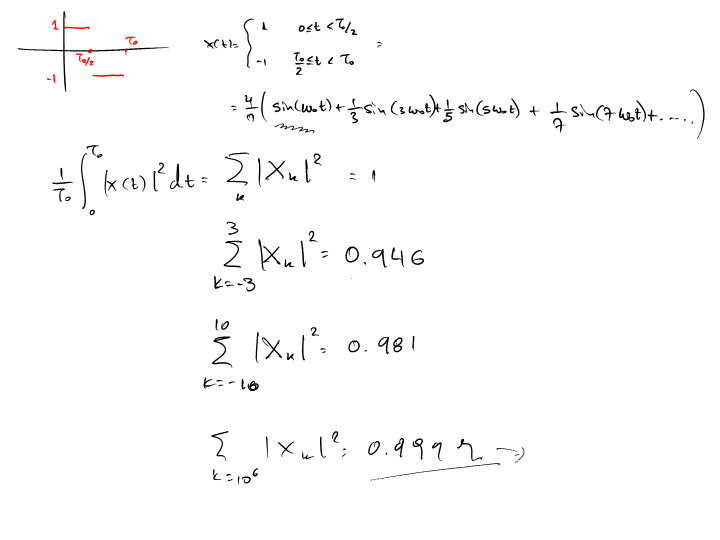 1
T₀
T₀/2
-1
x(t)= { 1 0≤t<T₀/2 =
-1 T₀/2≤t<T₀
= 4/π ( sin(ω₀t) + 1/3 sin(3ω₀t) + 1/5 sin(5ω₀t) + 1/7 sin(7ω₀t) + ..... )
1/T₀ ∫₀^T₀ |x(t)|² dt = ∑_k |X_k|² = 1
∑_{k=-3}^{3} |X_k|² = 0.946
∑_{k=-10}^{10} |X_k|² = 0.981
∑_{k=10⁶} |X_k|² = 0.999